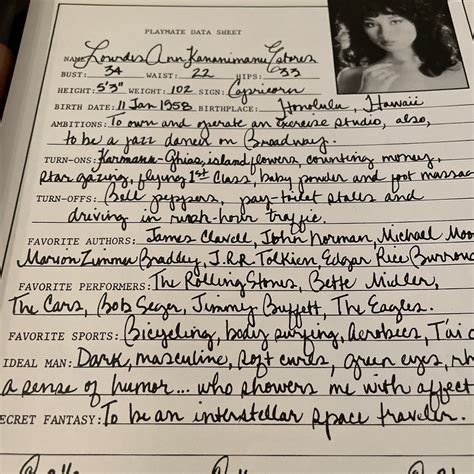 PLAYMATE DATA SHEET
NAME: Lourdes Ann Kananimanu Estores
BUST: 34 WAIST: 22 HIPS: 33
HEIGHT: 5'3" WEIGHT: 102 SIGN: Capricorn
BIRTH DATE: 11 Jan 1958 BIRTHPLACE: Honolulu, Hawaii
AMBITIONS: To own and operate an exercise studio, also,
to be a jazz dancer on Broadway.
TURN-ONS: Karmann-Ghias, island flowers, counting money,
star gazing, flying 1st Class, baby powder and foot massag
TURN-OFFS: Bell peppers, pay-toilet stalls and
driving in rush-hour traffic.
FAVORITE AUTHORS: James Clavell, John Norman, Michael Moo
Marion Zimmer Bradley, J.R.R Tolkien, Edgar Rice Burrou
FAVORITE PERFORMERS: The Rolling Stones, Bette Midler,
The Cars, Bob Seger, Jimmy Buffett, The Eagles.
FAVORITE SPORTS: Bicycling, body surfing, Aerobics, T'ai c
IDEAL MAN: Dark, masculine, soft curls, green eyes, rh
a sense of humor... who showers me with affect
ECRET FANTASY: To be an interstellar space traveler.